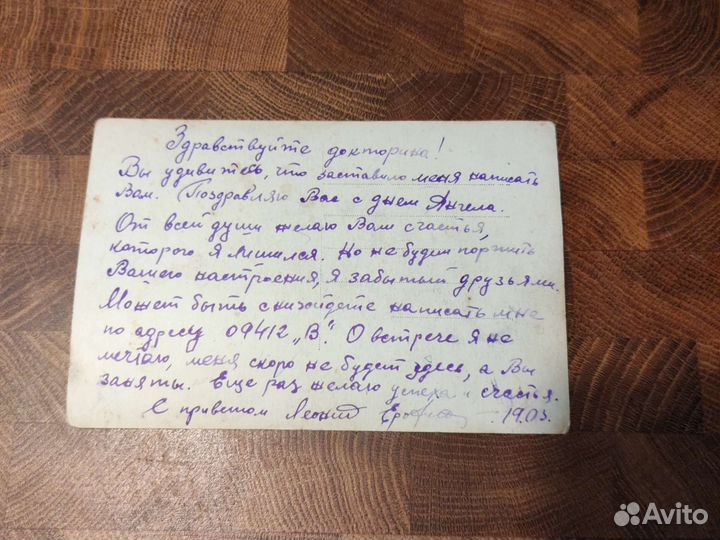 Здравствуйте докторина!
Вы удивитесь, что заставило меня написать
Вам. Поздравляю Вас с днем Ангела.
От всей души желаю Вам счастья,
которого я лишился. Но не будем портить
Вашего настроения, я забытый друзьями.
Может быть снизойдете написать мне
по адресу 09412 „В". О встрече я не
мечтаю, меня скоро не будет здесь, а Вы
заняты. Еще раз желаю успеха и счастья.
С приветом Леонид 19.03.
Avito